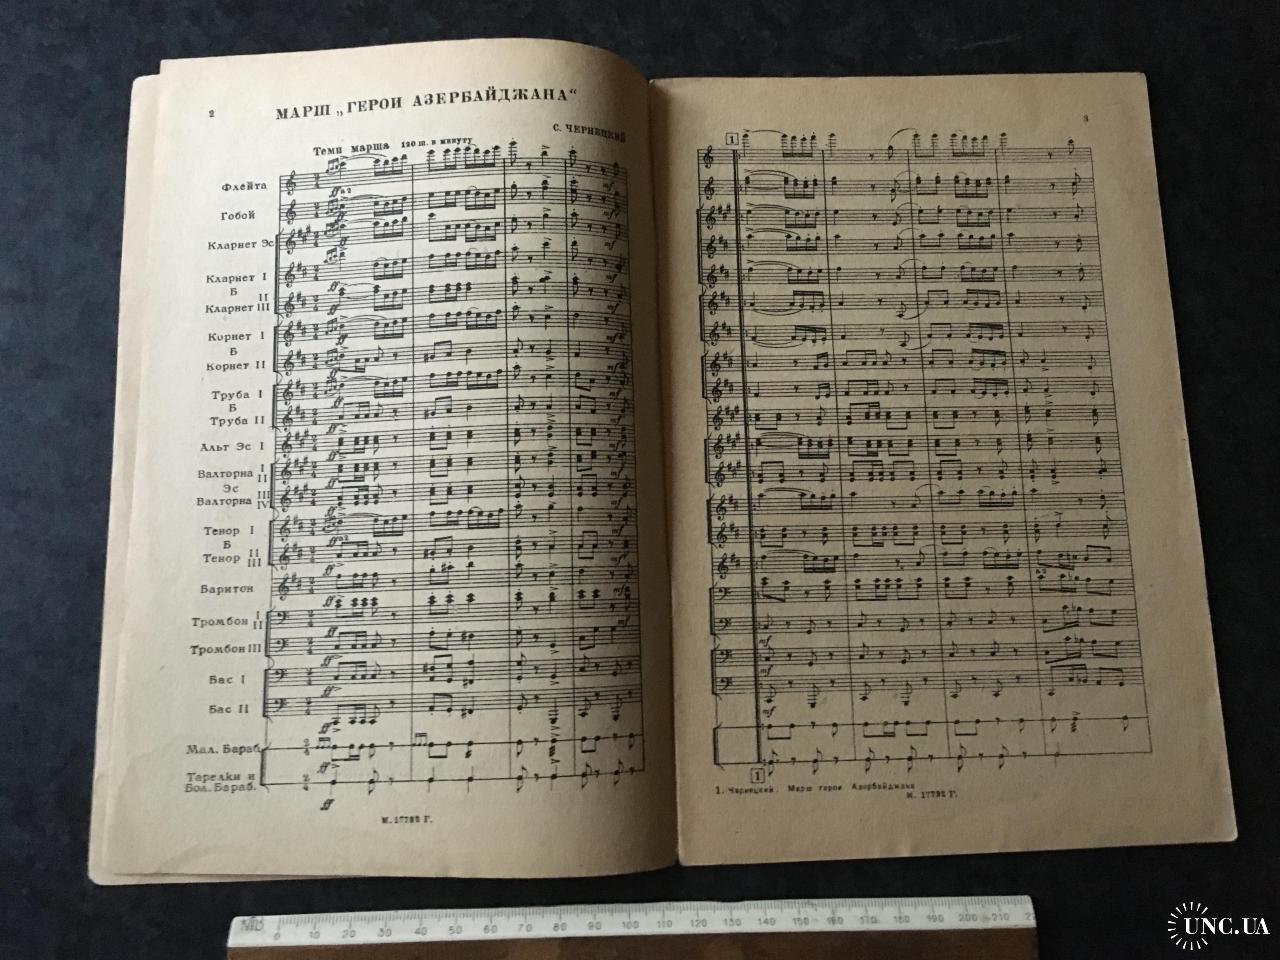 2
МАРШ „ГЕРОИ АЗЕРБАЙДЖАНА“
С. ЧЕРНЕЦКИЙ
Темп марша 120 ш. в минуту
Флейта
Гобой
Кларнет Эс
Кларнет I
Б
II
Кларнет III
Корнет I
Б
Корнет II
Труба I
Б
Труба II
Альт Эс I
Валторна I
II
Эс
Валторна III
IV
Тенор I
Б
Тенор II
III
Баритон
Тромбон I
II
Тромбон III
Бас I
Бас II
Мал. Бараб.
Тарелки и
Бол. Бараб.
М. 17792 Г.
3
1
1
1. Чернецкий. Марш герои Азербайджана
М. 17792 Г.
0 10 20 30 40 50 60 70 80 90 100 110 120 130 140 150 160 170 180 190 200 210 22
UNC.UA